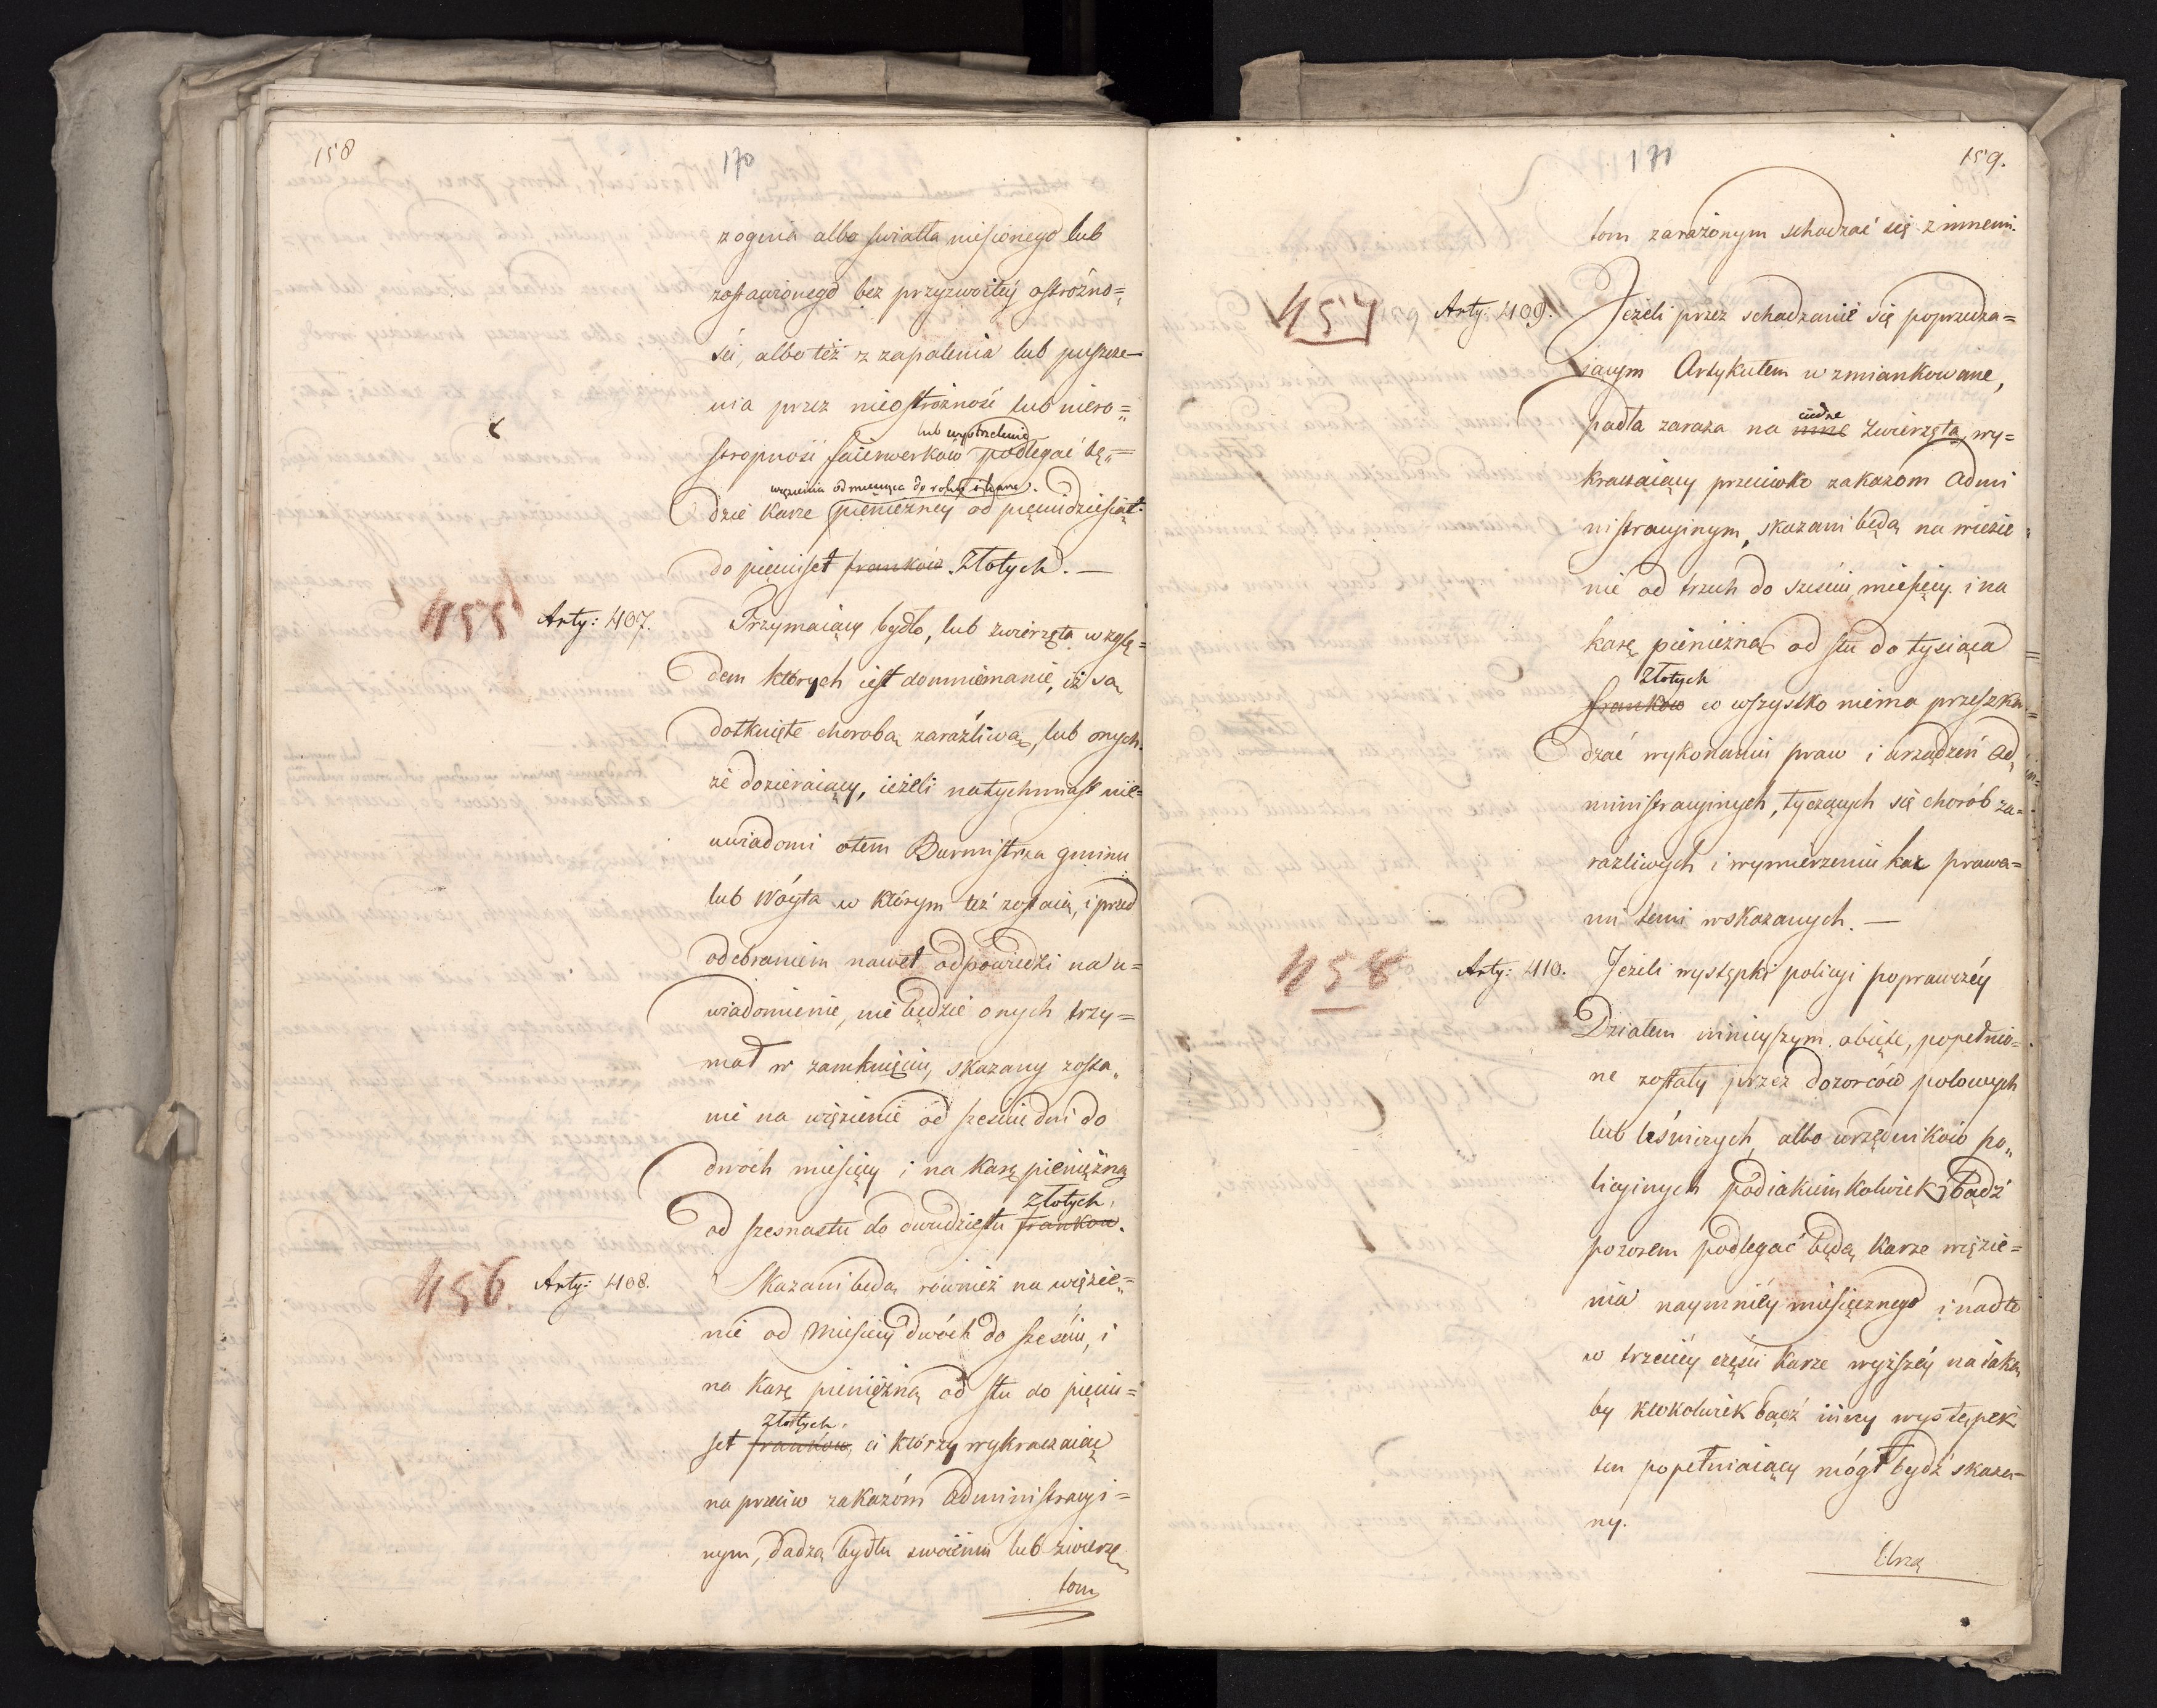 158
170
z ognia albo swiatła niesionego lub
zostawionego bez przyzwoitey ostrożno=
ści, albo też z zapalenia lub puszcze=
nia przez nieostrożność lub niero=
lub wystrzelenie
stropność faierwerków podlegać bę=
więzienia od miesiąca do roku i karze
dzie karze pieniężney od pięciudziesiąt
do pięciuset franków. Złotych. —
455 Arty: 407. Trzymaiący bydło, lub zwierzęta wzglę=
dem których iest domniemanie, iż są
dotknięte chorobą zaraźliwą, lub onych
że dozieraiący, ieżeli natychmiast nie=
uwiadomi otem Burmistrza gminu
lub Wóyta w którym też zostaią, i przed
odebraniem nawet odpowiedzi na u=
wiadomienie, nie będzie onych trzy=
mał w zamknięciu, skazany zosta„
nie na więzienie od sześciu dni do
dwóch miesięcy i na karę pieniężną
złotych.
od szesnastu do dwudziestu franków.
456. Arty: 408. Skazani będą również na więzie=
nie od Miesięcy dwóch do sześciu, i
na karę pieniężną od stu do pięciu=
złotych.
set franków, ci którzy wykraczaiąc
naprzeciw zakazóm administracyi=
nym, dadzą bydłu swoiemu lub zwierzę„
tom
171
159.
tom zarażonym schadzać się z innemi.
457 Arty: 409. Jeżeli przez schadzanie się poprzedza=
iącym Artykułem wzmiankowane,
cudze
padła zaraza na inne zwierzęta, wy=
kraczaiący przeciwko zakazom admi
nistracyinym, skazani będą na więzie„
nie od trzech do sześciu miesięcy i na
karę pieniężną od stu do tysiąca
złotych
franków co wszystko niema przeszka=
dzać wykonaniu praw i urządzeń ad„
ministracyinych, tyczących się chorób za=
raźliwych i wymierzeniu kar prawa=
mi temi wskazanych. —
458 Arty: 410. Jeżeli występki policyi poprawczéy
Działem ninieyszym obięte, popełnio=
ne zostały przez dozorców polowych
lub leśniczych, albo urzędników po„
licyinych pod iakiemkolwiek bądź
pozorem podlegać będą karze więzie=
nia naymniéy miesięcznego i nadto
w trzeciéy części karze wyższéy na iaką
by ktokolwiek bądź inny występek
ten popełniaiący mógł bydź skaza=
ny.
Urzą